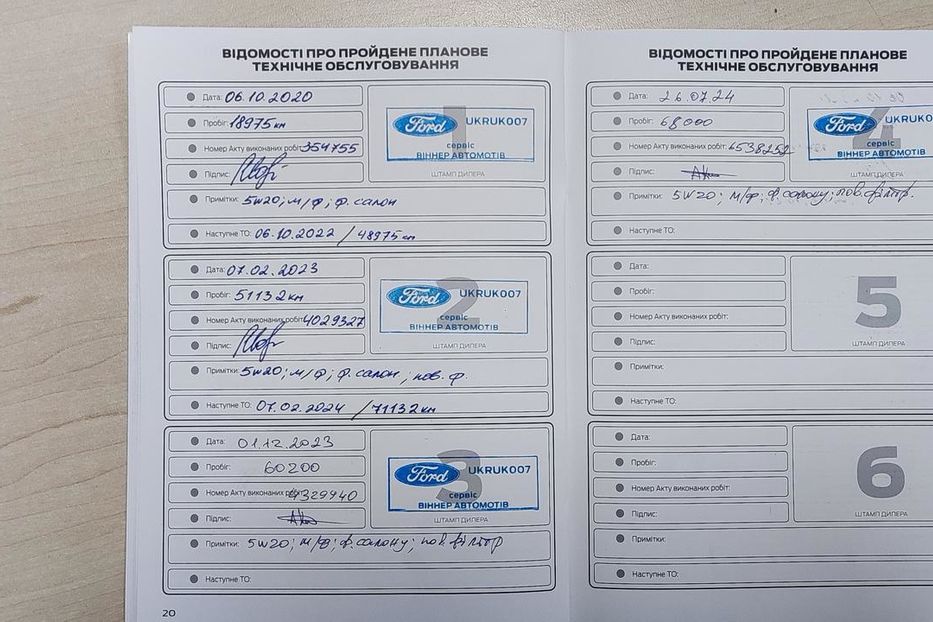 ВІДОМОСТІ ПРО ПРОЙДЕНЕ ПЛАНОВЕ
ТЕХНІЧНЕ ОБСЛУГОВУВАННЯ
Дата: 06.10.2020
Пробіг: 18975 км
Номер Акту виконаних робіт: 354755
Підпис:
1
Ford UKRUK007
сервіс
ВІННЕР АВТОМОТІВ
ШТАМП ДИЛЕРА
Примітки: 5w20; м/ф; ф. салон
Наступне ТО: 06.10.2022 / 48975 км
Дата: 07.02.2023
Пробіг: 51132 км
Номер Акту виконаних робіт: 4029327
Підпис:
2
Ford UKRUK007
сервіс
ВІННЕР АВТОМОТІВ
ШТАМП ДИЛЕРА
Примітки: 5w20; м/ф; ф. салон; пов. ф.
Наступне ТО: 07.02.2024 / 71132 км
Дата: 01.12.2023
Пробіг: 60200
Номер Акту виконаних 4329940
Підпис:
3
Ford UKRUK007
сервіс
ВІННЕР АВТОМОТІВ
ШТАМП ДИЛЕРА
Примітки: 5w20; м/ф; ф. салону; пов. фільтр
Наступне ТО:
20
ВІДОМОСТІ ПРО ПРОЙДЕНЕ ПЛАНОВЕ
ТЕХНІЧНЕ ОБСЛУГОВУВАННЯ
Дата: 26.07.24
Пробіг: 68000
Номер Акту виконаних робіт: 6538252
Підпис:
4
Ford UKRUK0
сервіс
ВІННЕР АВТОМОТІВ
ШТАМП ДИЛЕРА
Примітки: 5W20; м/ф; ф. салону; пов. фільтр.
Наступне ТО:
Дата:
Пробіг:
Номер Акту виконаних робіт:
Підпис:
5
ШТАМП ДИЛЕРА
Примітки:
Наступне ТО:
Дата:
Пробіг:
Номер Акту виконаних робіт:
Підпис:
6
ШТАМП ДИЛЕРА
Примітки:
Наступне ТО: